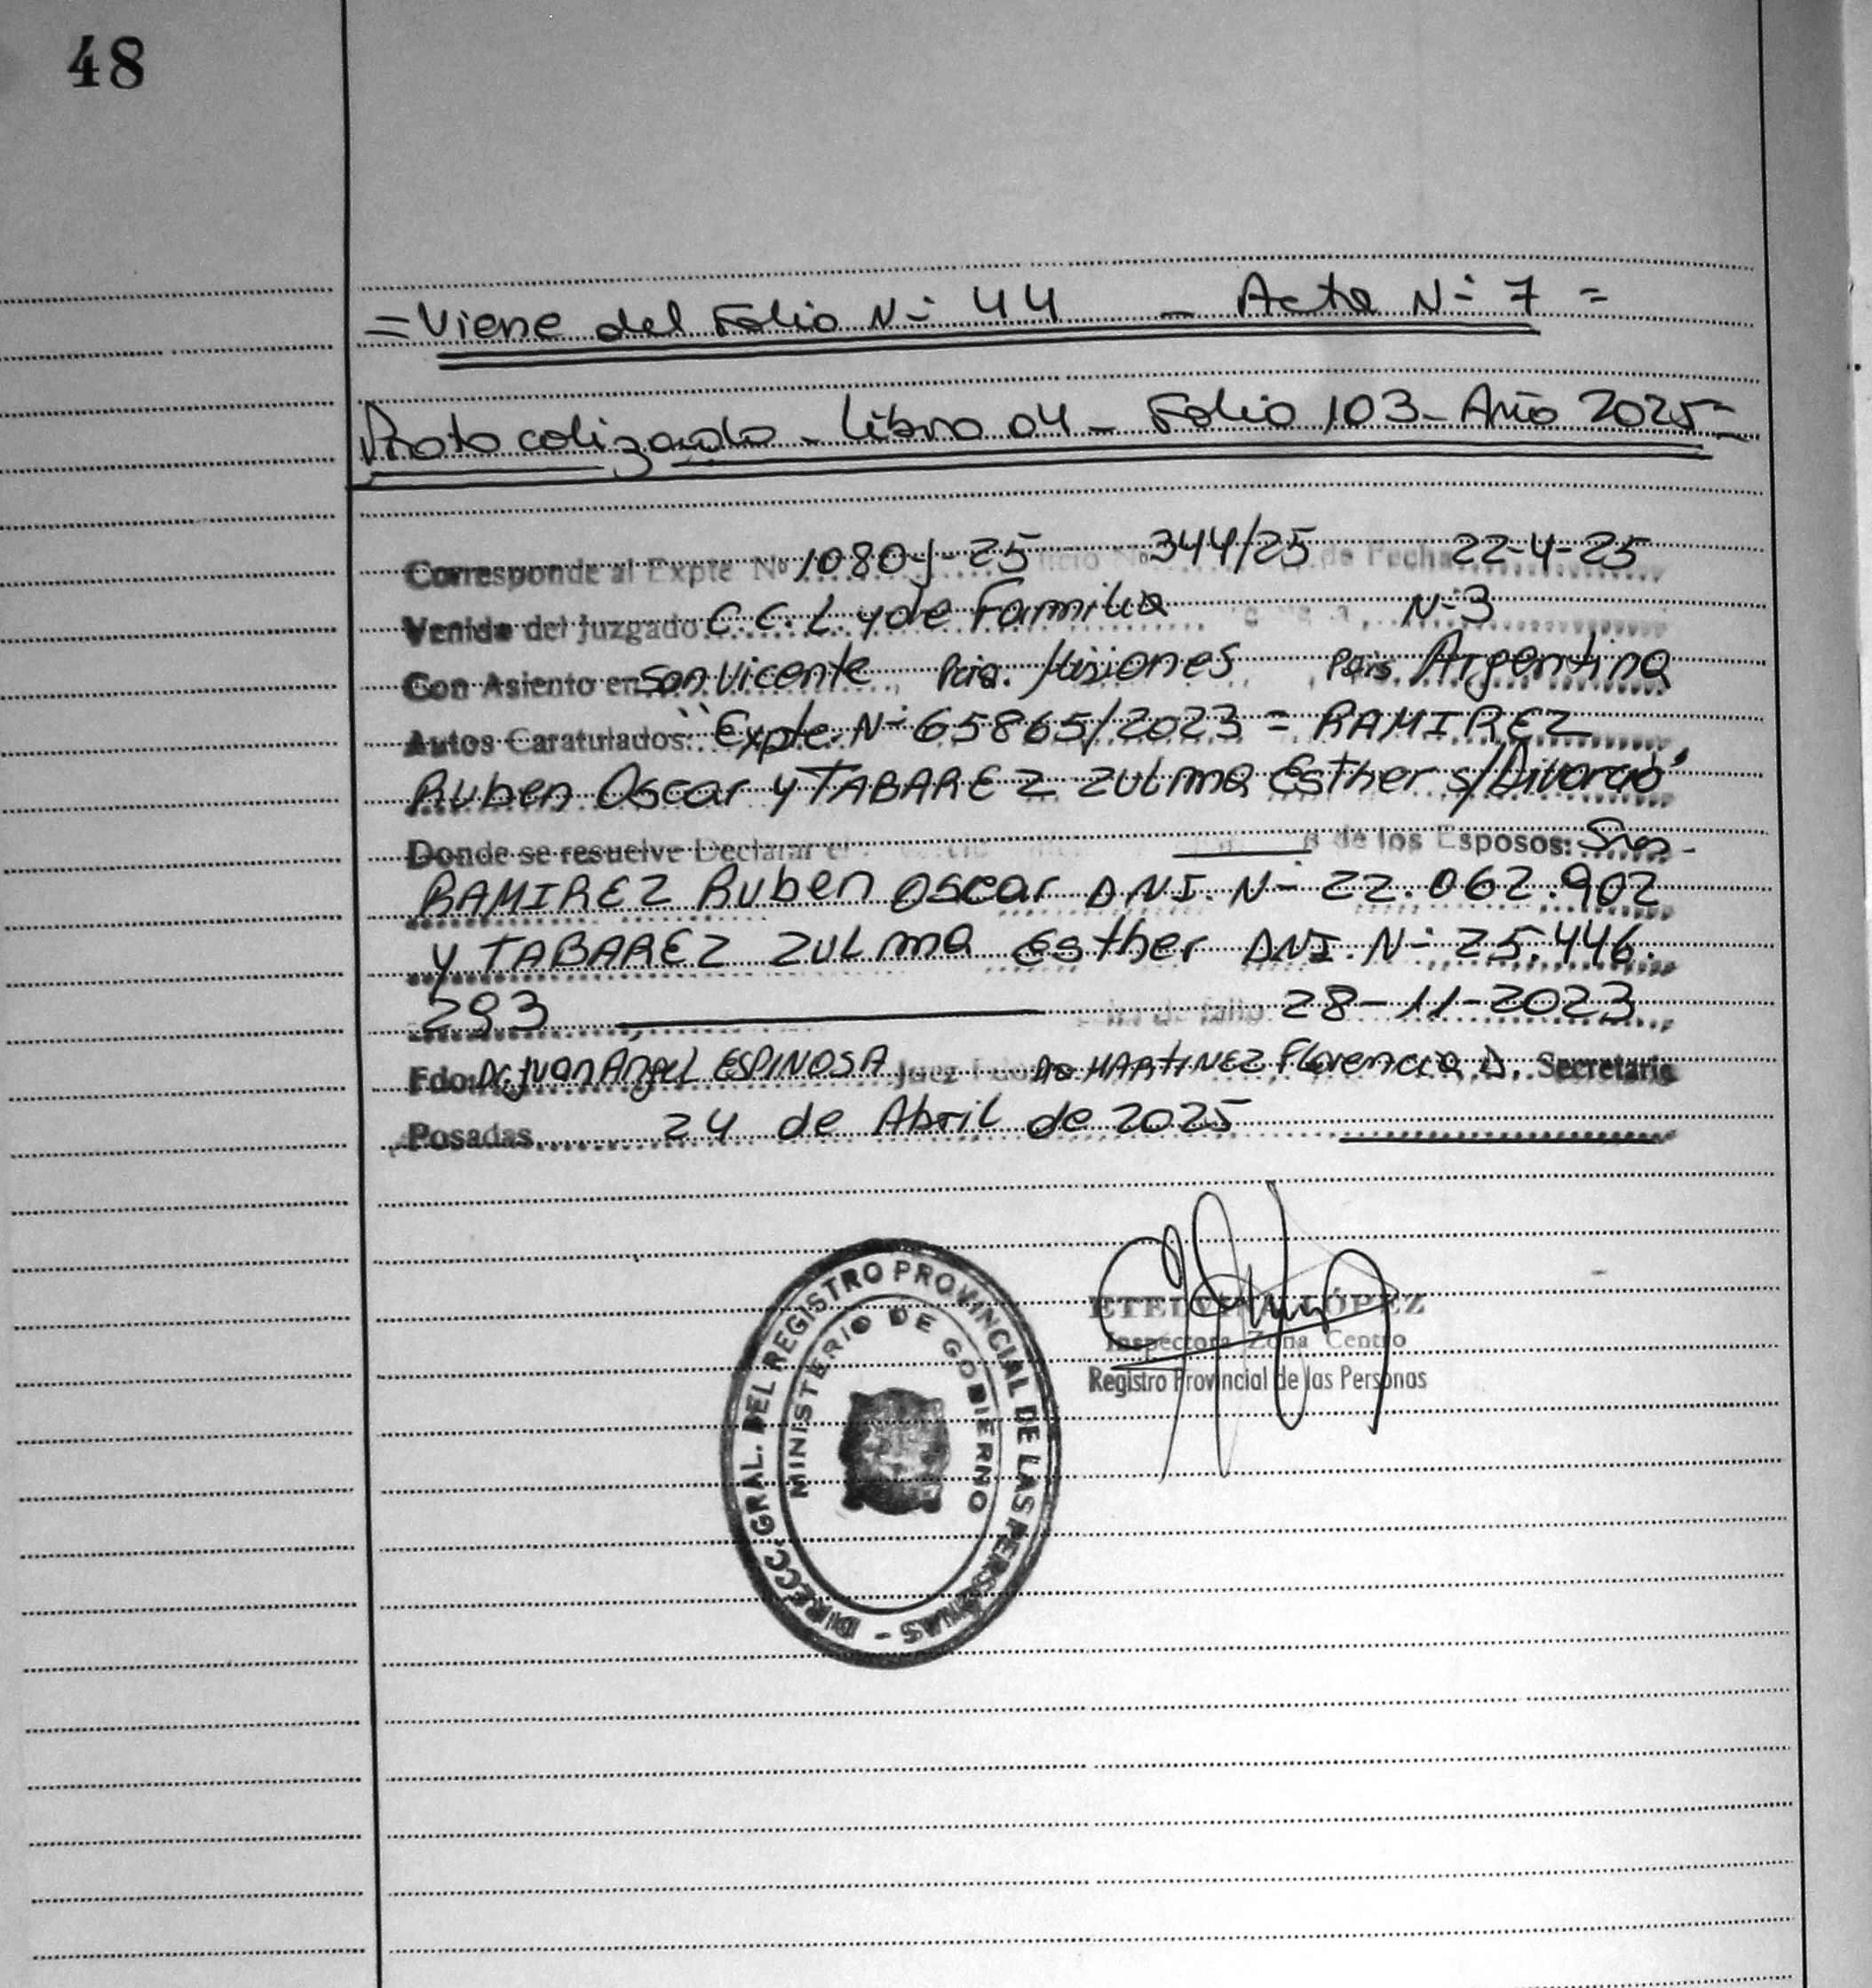 48
= Viene del Folio Nº 44 - Acta Nº 7 =
Protocolizado - Libro 04 - Folio 103 - Año 2025 =
Corresponde al Expte Nº 1080-J-25 Oficio Nº 344/25 de Fecha 22-4-25
Venido del Juzgado C.C.L. y de Familia Nº 3
Con Asiento en San Vicente, Pcia. Misiones, Pais Argentina
Autos Caratulados: "Expte. Nº 65865/2023 = RAMIREZ
Ruben Oscar y TABAREZ Zulma Esther s/Divorcio"
Donde se resuelve Declarar el de los Esposos: Sres.
RAMIREZ Ruben Oscar DNI. Nº 22.062.902
y TABAREZ Zulma Esther DNI. Nº 25.446.
293 de fallo 28-11-2023
Fdo: Dr. Juan Ángel ESPINOSA Juez Fdo MARTINEZ Florencia D. Secretaria
Posadas 24 de Abril de 2025
DIRECC. GRAL. DEL REGISTRO PROVINCIAL DE LAS PERSONAS -
MINISTERIO DE GOBIERNO
LÓPEZ
Inspectora Zona Centro
Registro Provincial de las Personas